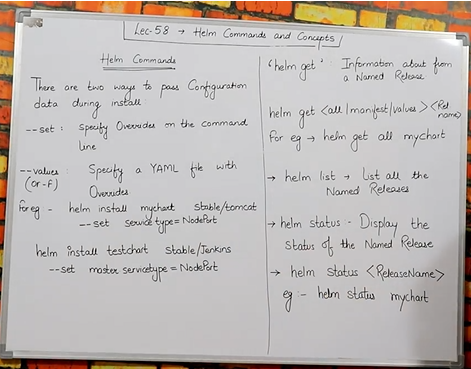 Lec-58 → Helm Commands and Concepts
Helm Commands
There are two ways to pass Configuration
data during install:
--set : Specify Overrides on the command
line
--values : Specify a YAML file with
(or -f) Overrides
for eg - helm install mychart stable/tomcat
--set service type = NodePort
helm install testchart stable/Jenkins
--set master.servicetype = NodePort
'helm get' : Information about from
a Named Release
helm get <all/manifest/values> <Rel.
name>
for eg → helm get all mychart
→ helm list → List all the
Named Releases
→ helm status - Display the
Status of the Named Release
→ helm status <ReleaseName>
eg :- helm status mychart